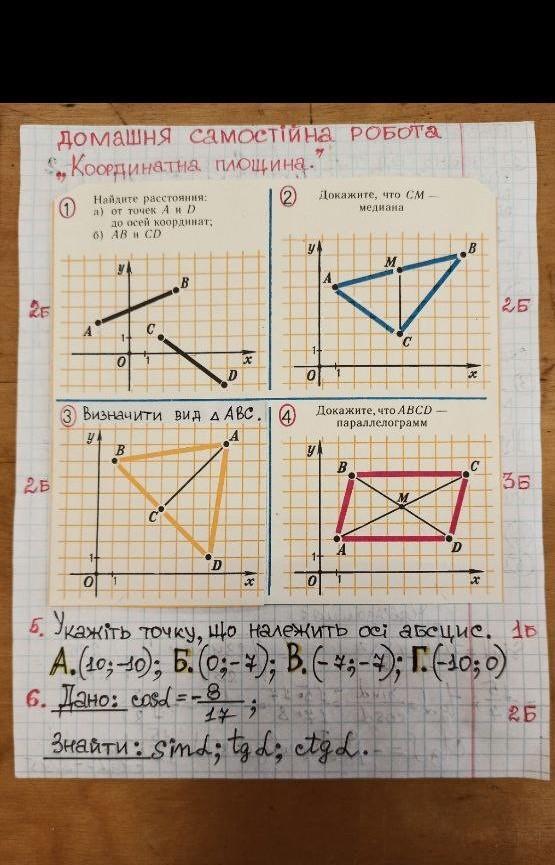 ДОМАШНЯ САМОСТІЙНА РОБОТА
„Координатна площина."
1
Найдите расстояния:
а) от точек A и D
до осей координат;
б) AB и CD
y
B
A
C
1
O
1
x
D
2Б
2
Докажите, что CM —
медиана
y
B
M
A
C
1
O
1
x
2Б
3
Визначити вид △ ABC.
y
A
B
C
D
1
O
1
x
2Б
4
Докажите, что ABCD —
параллелограмм
y
B
C
M
A
D
1
O
1
x
3Б
5. Укажіть точку, що належить осі абсцис. 1Б
А.(10;-10); Б.(0;-7); В.(-7;-7); Г.(-10;0)
6. Дано: cosα = -8/17;
2Б
Знайти: sinα; tgα; ctgα.